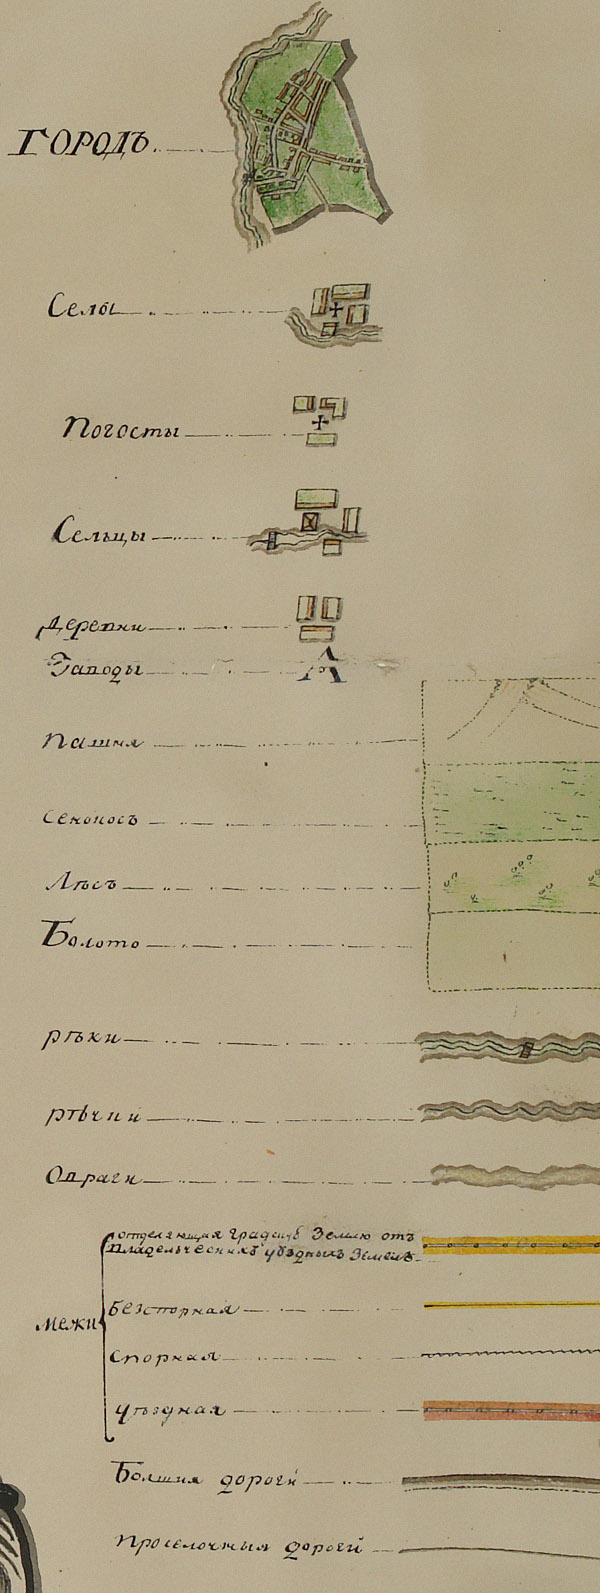 ГОРОДЪ
Селы
Погосты
Сельцы
Деревни
Заводы
пашня
сенокосъ
Лѣсъ
Болото
рѣки
рѣчки
Овраги
отделяющая градскую Землю отъ
владельческихъ уѣздныхъ Земель
межи
безспорная
спорная
уѣздная
Болшия дороги
проселочныя дорогй